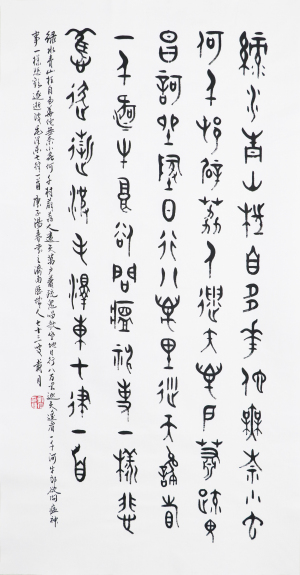 綠水青山枉自多華佗無奈小虫
何千村薜荔人遺矢萬戶蕭疏鬼
唱歌坐地日行八萬里巡天遙看
一千河牛郎欲問瘟神事一樣悲
歡逐逝波毛澤東七律一首
綠水青山枉自多華佗無奈小虫何千村薜荔人遺矢萬戶蕭疏鬼唱歌坐地日行八万里巡天遙看一千河牛郎欲問瘟神
事一樣悲歡逐逝波毛澤東七律一首 庚子陽春